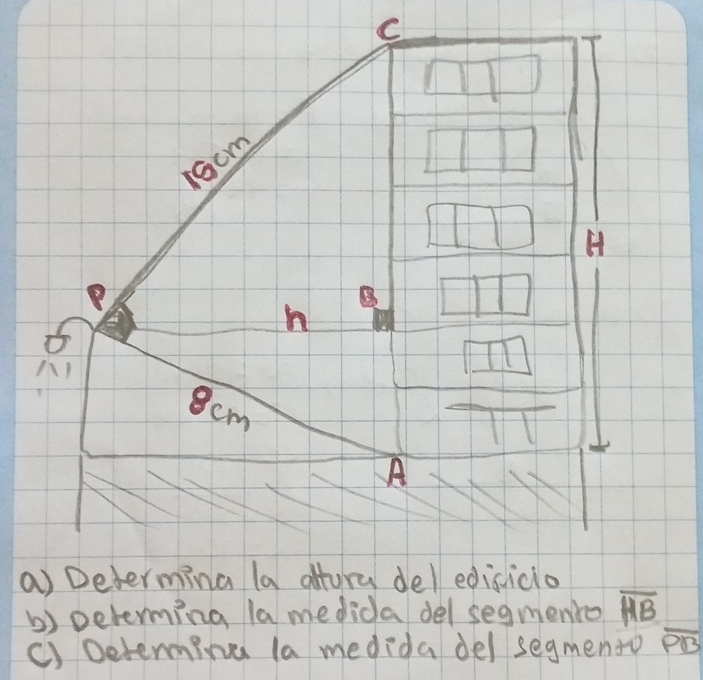 C
18cm
H
P
B
h
8cm
A
a) Determina la altura del edificio
b) Determina la medida del segmento AB
c) Determina la medida del segmento PB